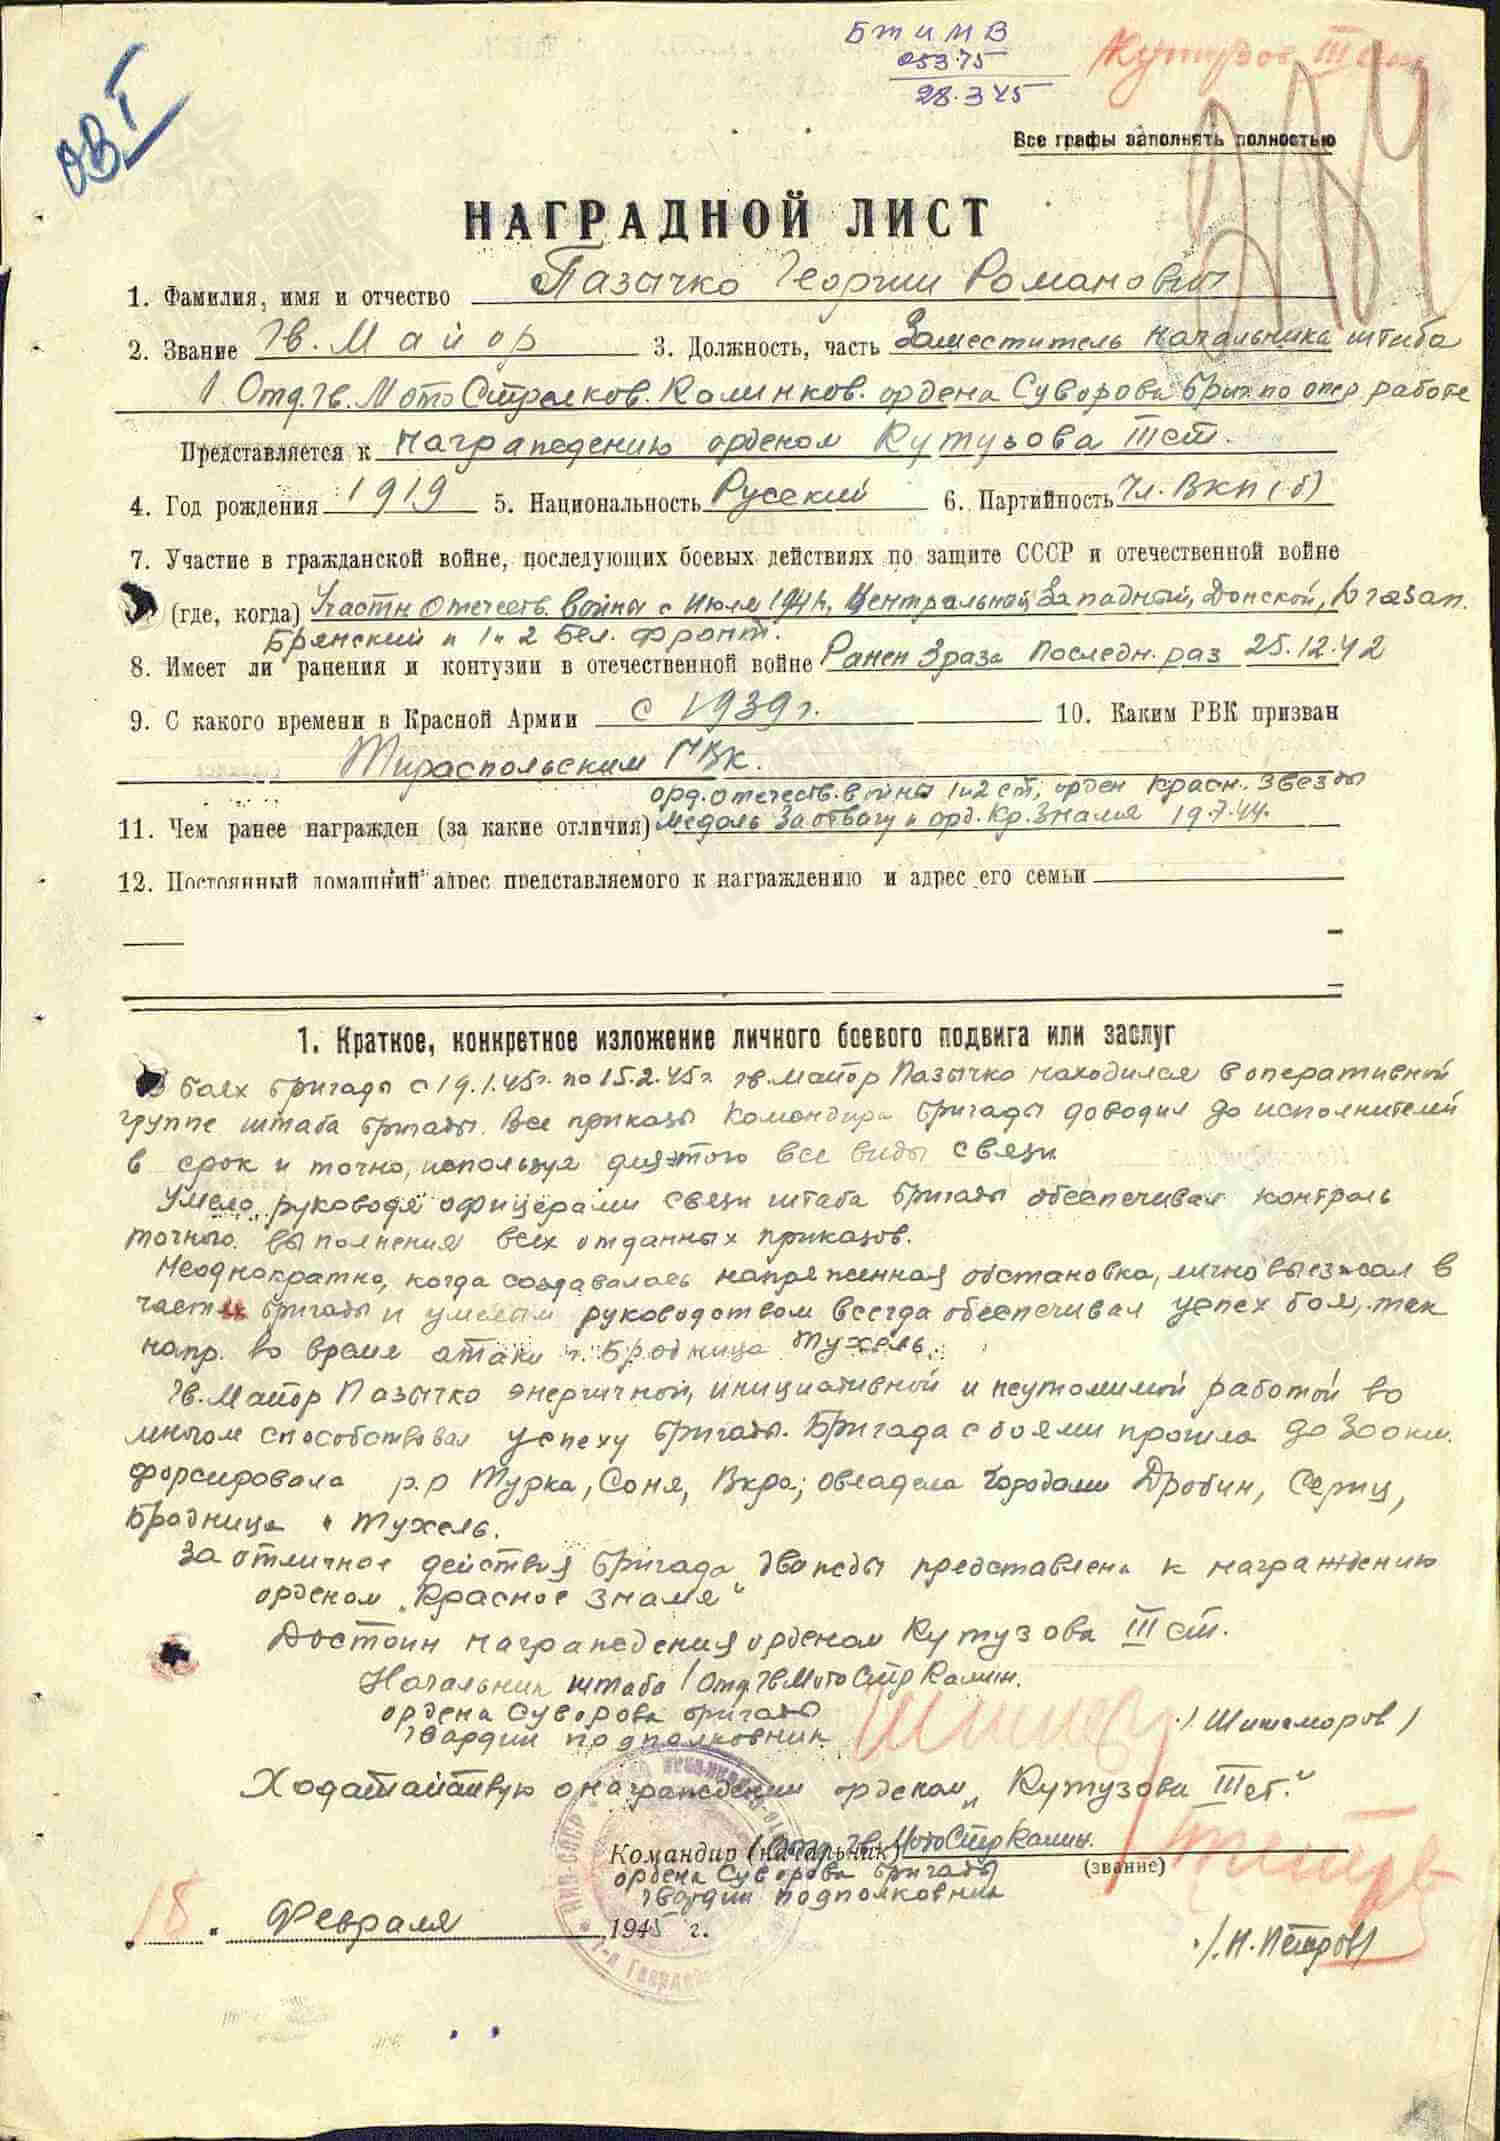 БТ и МВ
05375
28.3.45
Кутузов III ст
ОВ I
Все графы заполнять полностью
НАГРАДНОЙ ЛИСТ
1. Фамилия, имя и отчество Пазычко Георгий Романович
2. Звание Гв. Майор 3. Должность, часть Заместитель начальника штаба
1 Отд. Гв. Мото Стрелков. Калинков. ордена Суворова Бриг. по опер работе
Представляется к награждению орденом Кутузова III ст.
4. Год рождения 1919 5. Национальность Русский 6. Партийность Чл. ВКП(б)
7. Участие в гражданской войне, последующих боевых действиях по защите СССР и отечественной войне
(где, когда) Участн Отечеств. Войны с Июля 1941г, Центральной, Западный, Донской, Югозап.
Брянский и 1 и 2 Бел. Фронт.
8. Имеет ли ранения и контузии в отечественной войне Ранен 3 раза последн. раз 25.12.42
9. С какого времени в Красной Армии с 1939 г. 10. Каким РВК призван
Тираспольским ГВК.
орд. отечеств. войны 1 и 2 ст, орден Красн. Звезды
11. Чем ранее награжден (за какие отличия) Медаль За отвагу и орд. Кр. Знамя 19.7.44.
12. Постоянный домашний адрес представляемого к награждению и адрес его семьи
1. Краткое, конкретное изложение личного боевого подвига или заслуг
В боях бригады с 19.1.45г. по 15.2.45г. гв. майор Пазычко находился в оперативной
группе штаба бригады. Все приказы командира бригады доводил до исполнителей
в срок и точно, используя для этого все виды связи
Умело руководя офицерами связи штаба бригады обеспечивал контроль
точного выполнения всех отданных приказов.
Неоднократно, когда создавалась напряженная обстановка, лично выезжал в
части бригады и умелым руководством всегда обеспечивал успех боя, так
напр. во время атаки г. Бродница Тухель.
Гв. Майор Пазычко энергичной, инициативной и неутомимой работой во
многом способствовал успеху бригады. Бригада с боями прошла до 300 км.
форсировала р.р Турка, Соня, Вкра; овладела городами Дробин, Серпц,
Бродница и Тухель.
За отличное действия бригада дважды представлена к награждению
орденом "Красное Знамя"
Достоин награждения орденом Кутузова III ст.
Начальник штаба 1 Отд. Гв Мото Стр Калин.
ордена Суворова бригады
гвардии подполковник /Шишморов/
Ходатайствую о награждении орденом "Кутузова III ст."
Командир (начальник) 1 Отд. Гв. Мото Стр Калин.
(звание)
ордена Суворова бригады
гвардии подполковник
"18" Февраля 1945 г.
/Н. Петров/